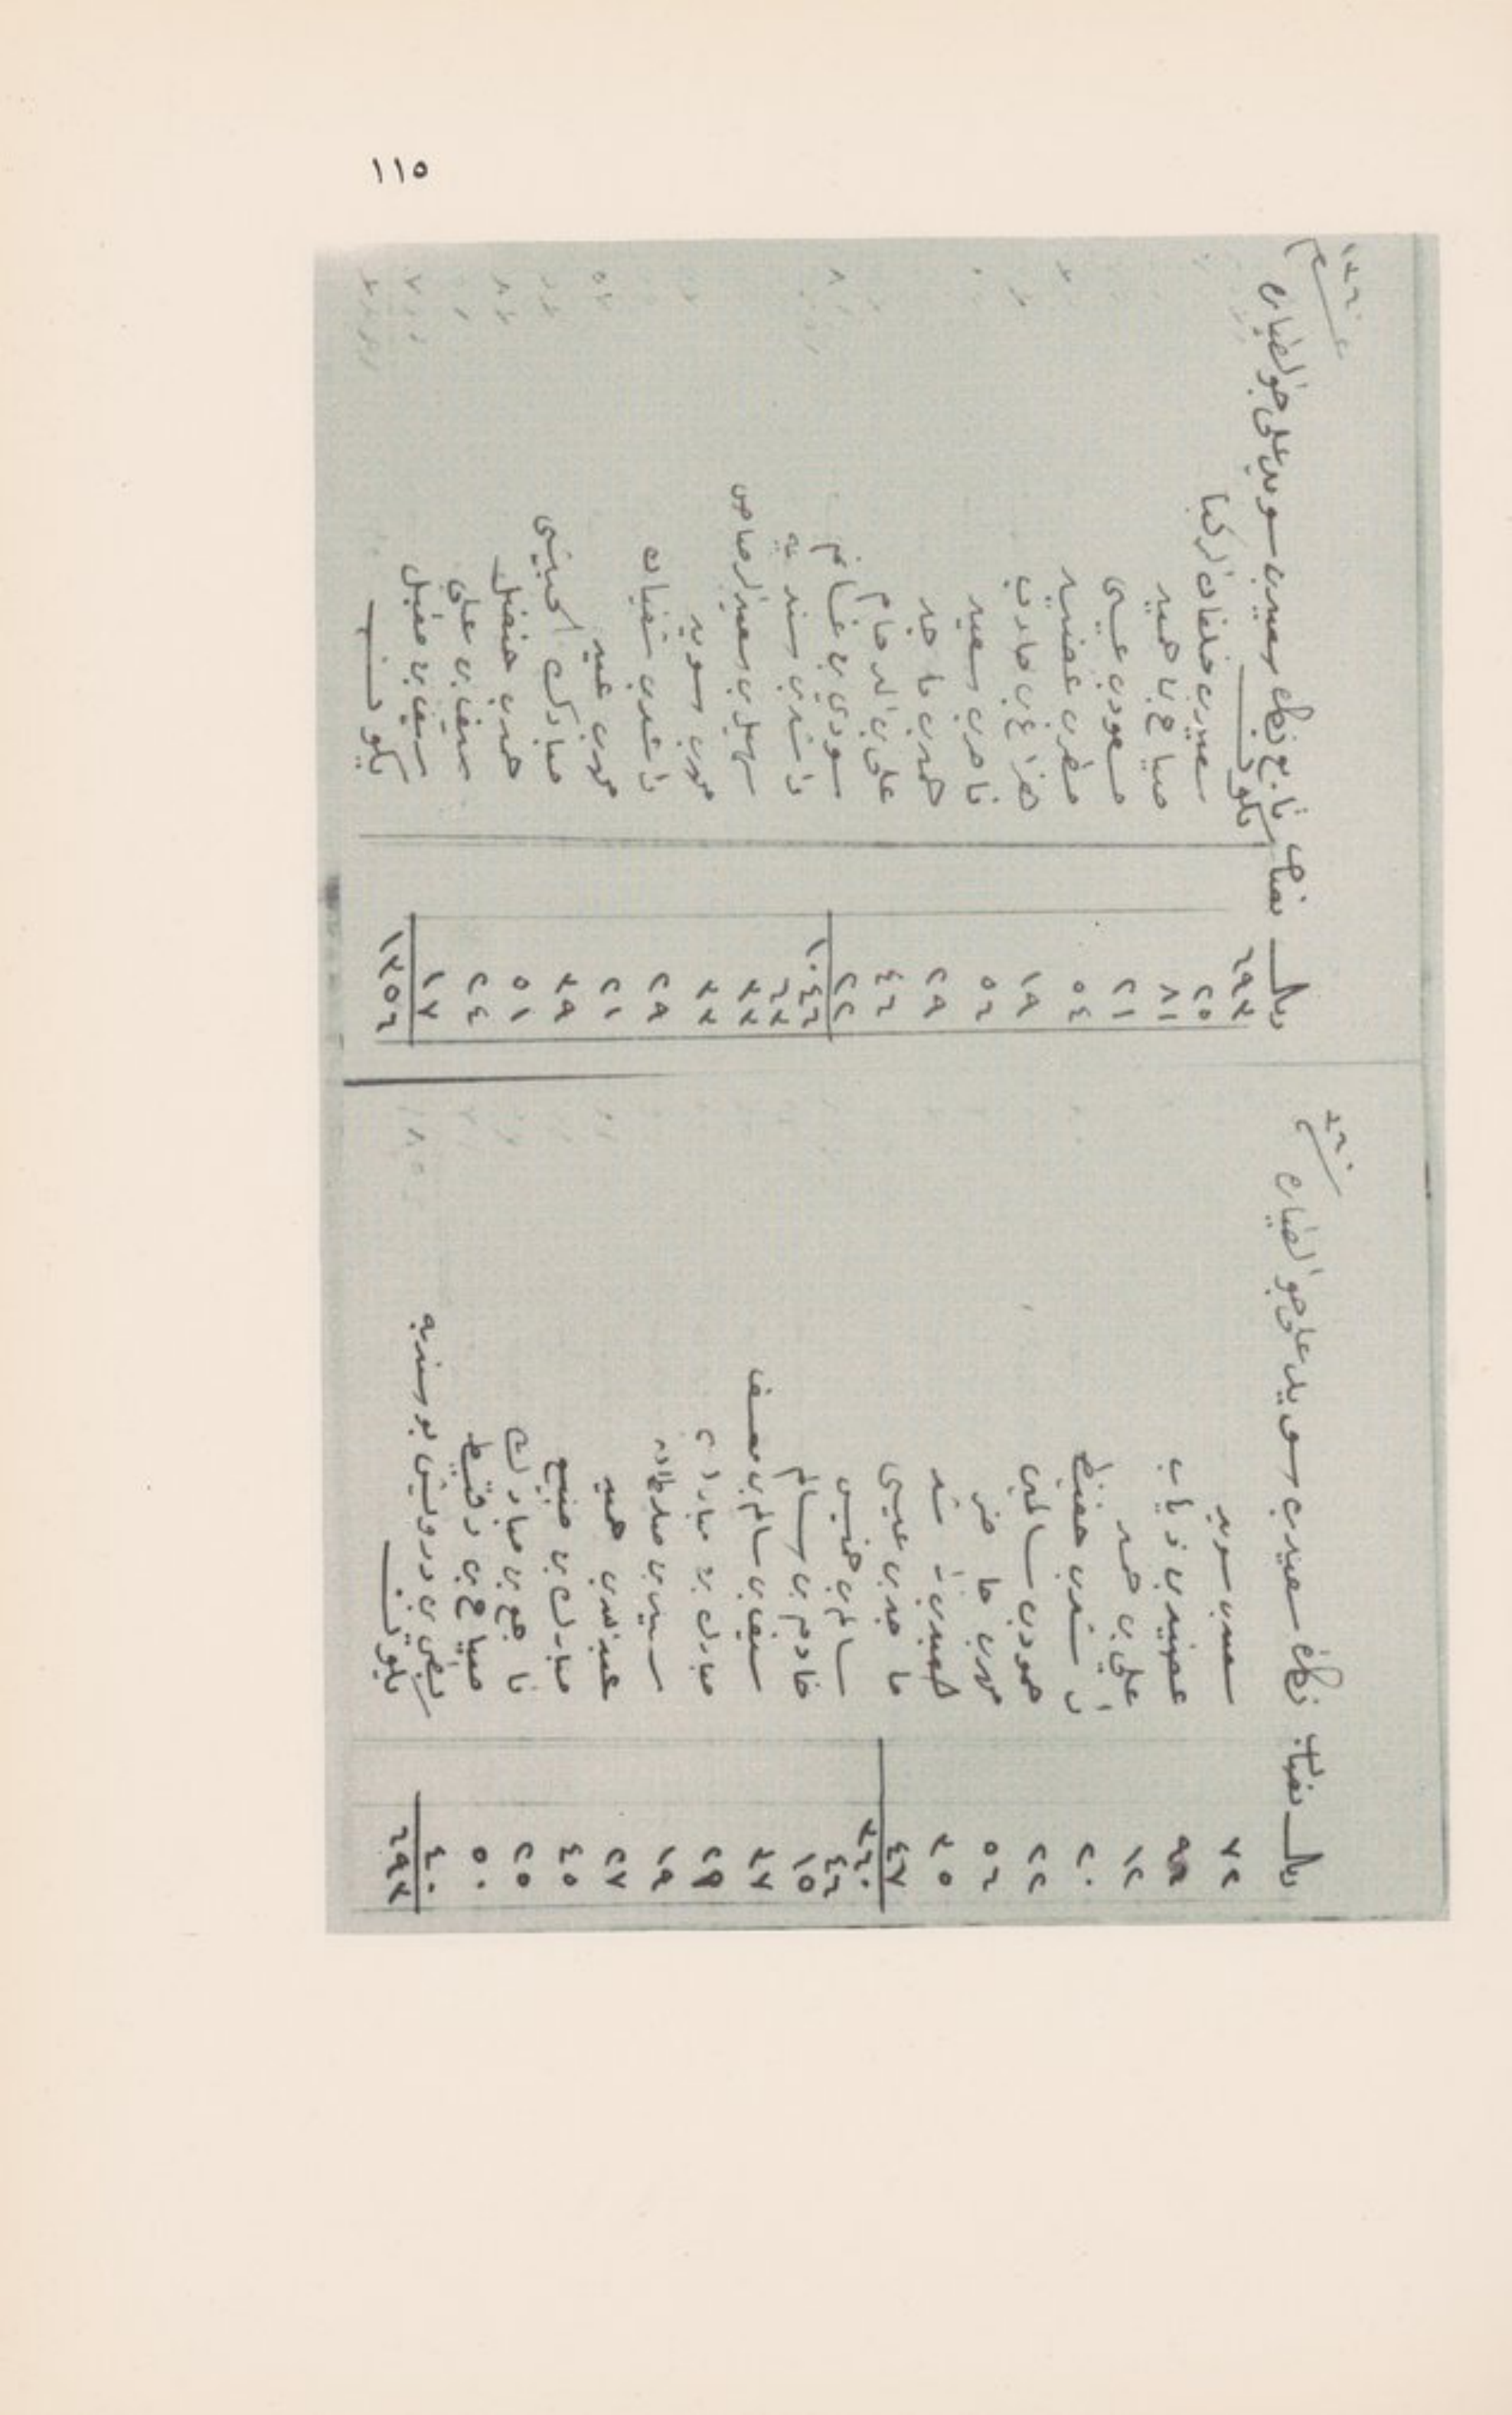 ١١٥
ريال نصاب سعيد بن سويد على جو الضيان
٧٢ سعيد بن سويد
٩٦ عضيد بن ذياب
١٢ علي بن حمد
٢٠ راشد بن حفيظ
٢٢ حمود بن سالمين
٥٦ مهر بن حاضر
٣٥ حميد بن راشد
٤٧ ماجد بن عيسى
٣٦٠
٤٦ سالم بن خميس
١٥ خادم بن سالم
٣٧ سيف بن سالم بن
٢٩ مبارك بن مبارك
١٩ سبيت بن سلطان
٢٧ عبيد بن حميد
٤٥ مبارك بن صبيح
٢٥ بن مبارك
٥٠ صياح بن رقيط
٤٠ بن درويش بو سنديه
٦٩٣ يكون
ريال نصاب تابع سعيد بن سويد على جو الضيان
٦٩٣ يكون
٢٥ سعيد بن خلفان الركبا
٨١ صياح بن حميد
٢١ مسعود بن عيسى
٥٤ مطر بن غضيد
١٩ هزاع بن حارب
٥٦ ناصر بن سعيد
٢٩ حمد بن ماجد
٤٦ علي بن الدحام
٢٢ سودي بن غانم
١٠٤٦
٦٣ راشد بن سنديه
٣٣ سهيل بن سعيد الرصاص
٣٣ مهر بن سويد
٢٩ راشد بن
٢١ مهر بن عبيد
٣٩ مبارك الحبيشي
٥١ حمد بن حنضل
٢٤ سيف بن علي
١٧ سيف بن مقبل
١٣٥٦ يكون